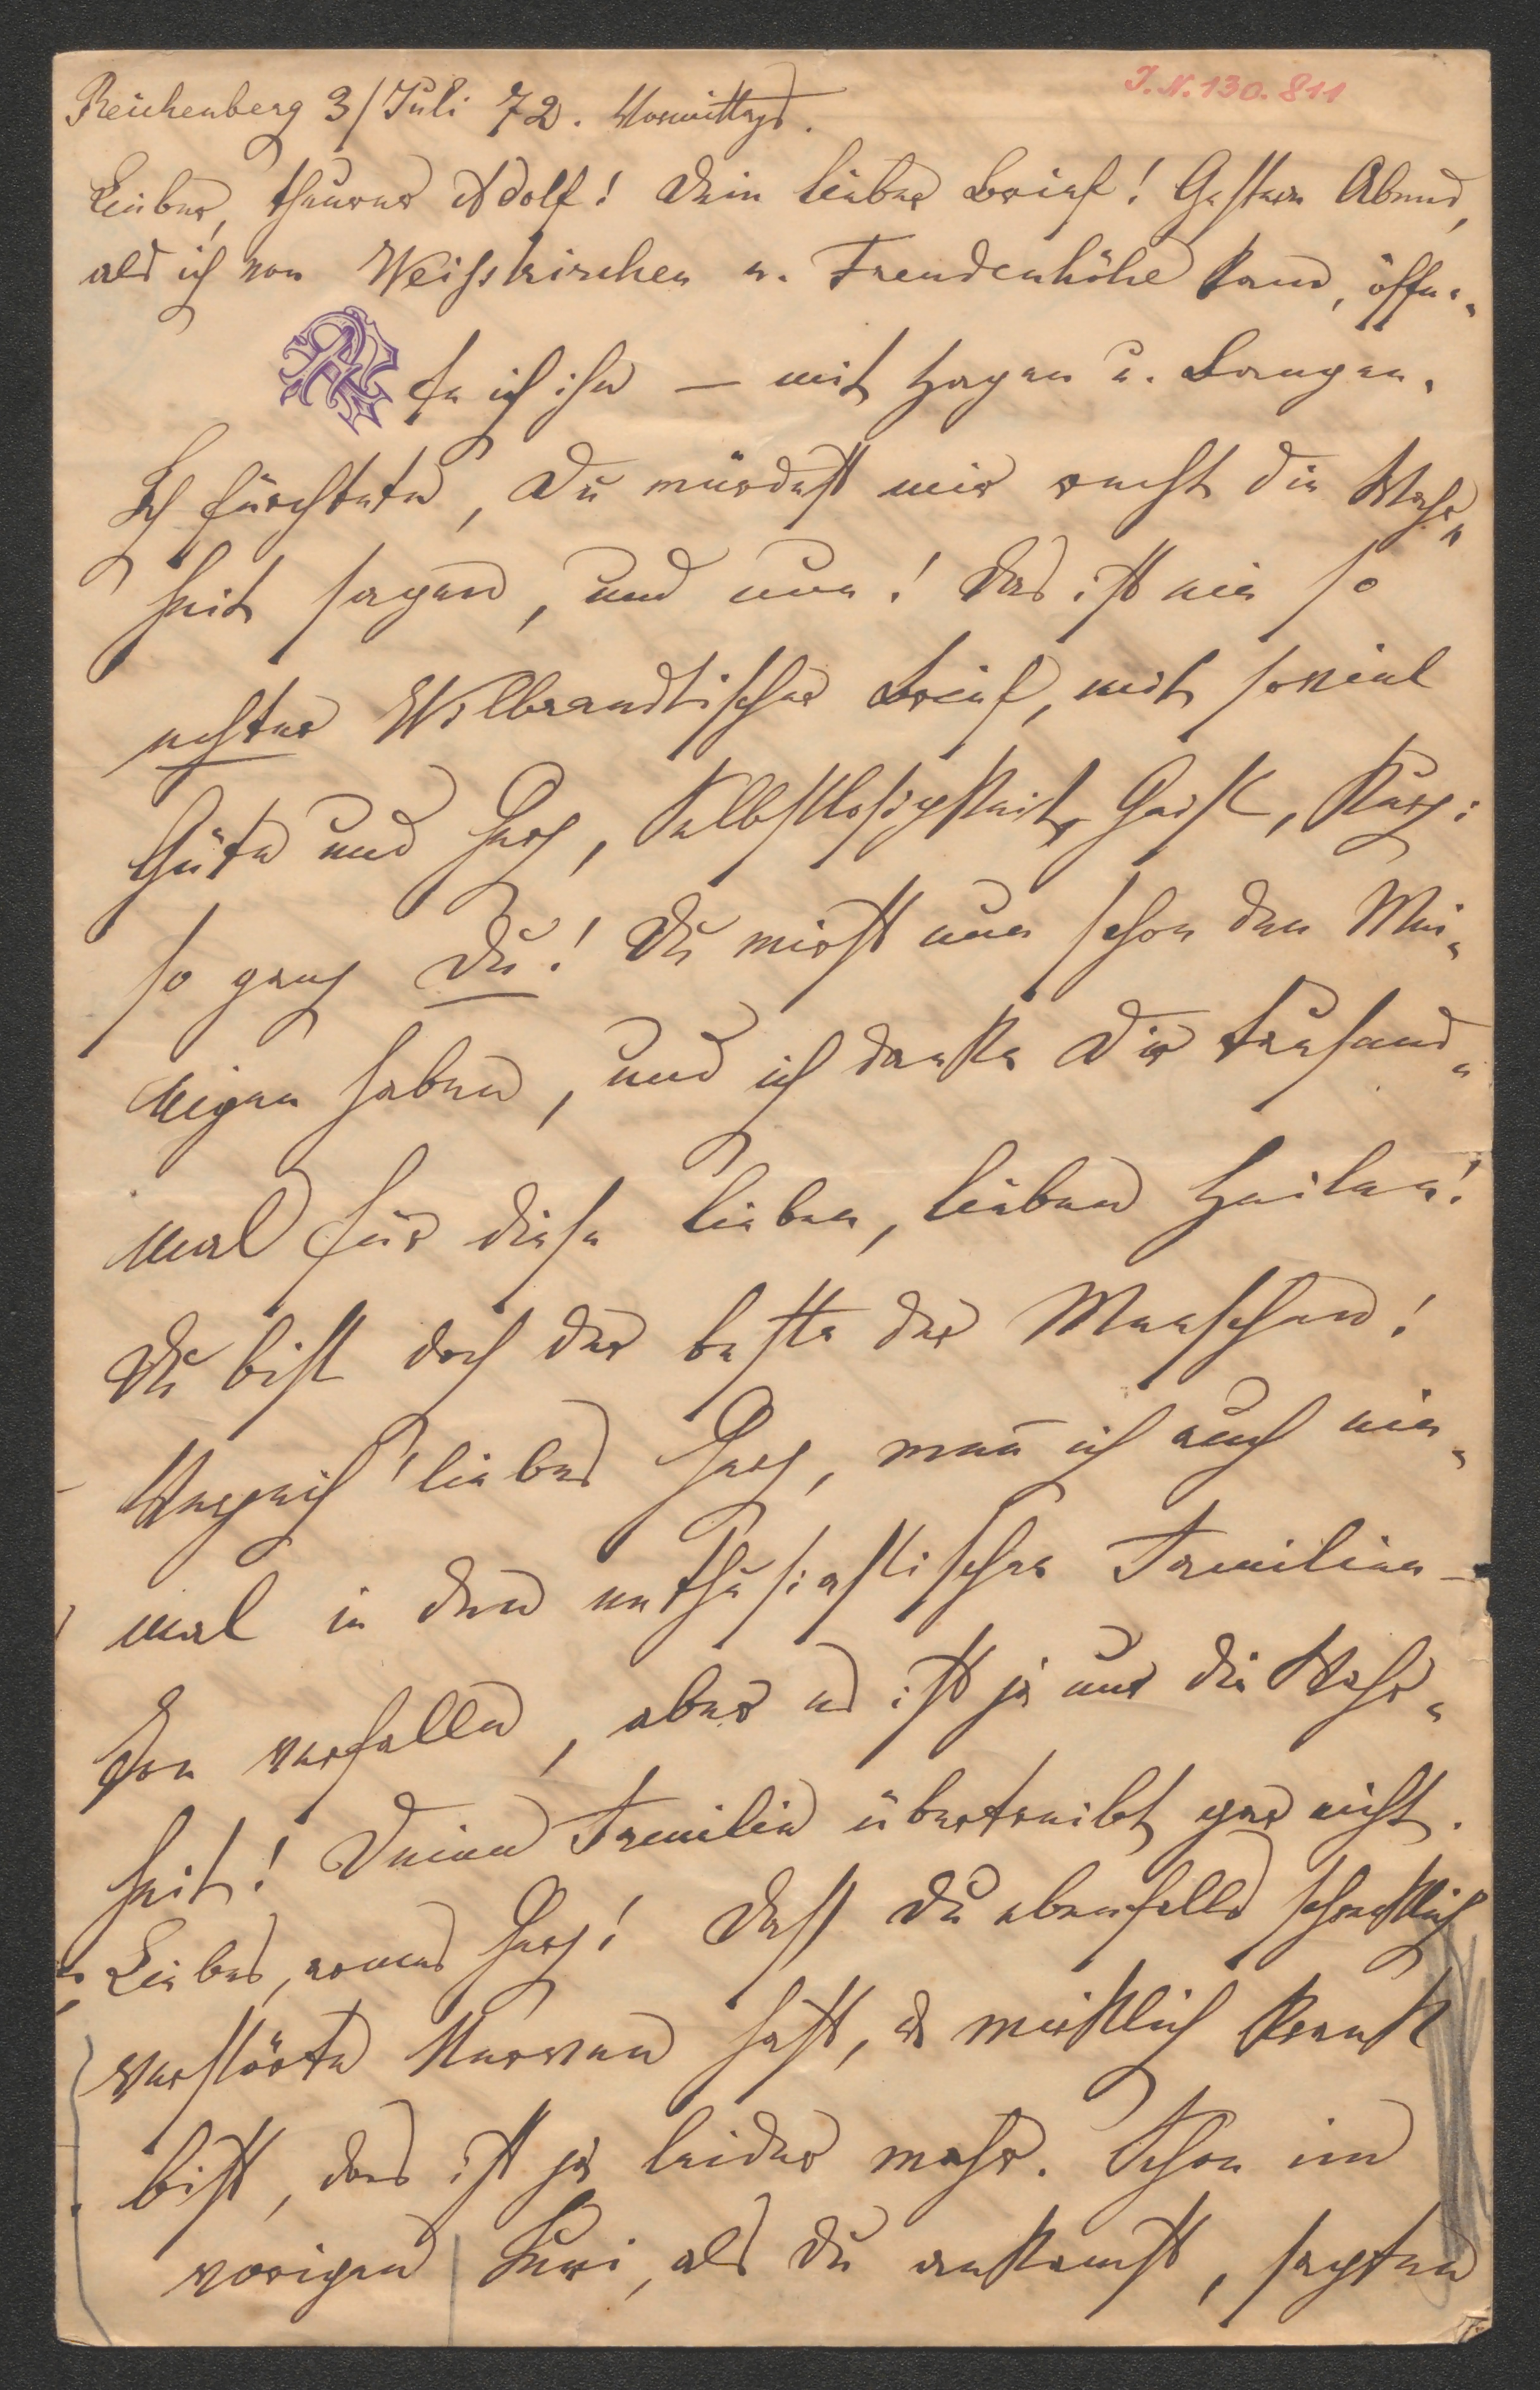 J.N.130.811
Reichenberg 3/Juli 72. Vormittags.
Lieber, theurer Adolf! Dein lieber Brief! Gestern Abend,
als ich von Weisskirchen u. Freudenhöhe kam, öffne-
te ich ihn — mit Zagen u. Bangen.
Ich fürchtete, Du würdest mir recht die Wahr-
heit sagen, und nun! Das ist ein so
echter Wilbrandtischer Brief, mit soviel
Güte und Herz, Selbstlosigkeit, Geist, kurz:
so ganz Du! Du wirst nun schon den Mei-
nigen haben, und ich danke Dir tausend-
mal für diese lieben, lieben Zeilen!
Du bist doch der beste der Menschen!
Verzeih' liebes Herz, wenn ich auch ein-
mal in den enthusiastischen Familien-
Ton verfalle, aber es ist ja nur die Wahr-
heit! Deine Familie übertreibt gar nicht.
Liebes, armes Herz! Daß Du ebenfalls schrecklich
verstörte Nerven hast, u wirklich krank
bist, das ist ja leider wahr. Schon im
vorigen Juni, als Du ankamst, sagten